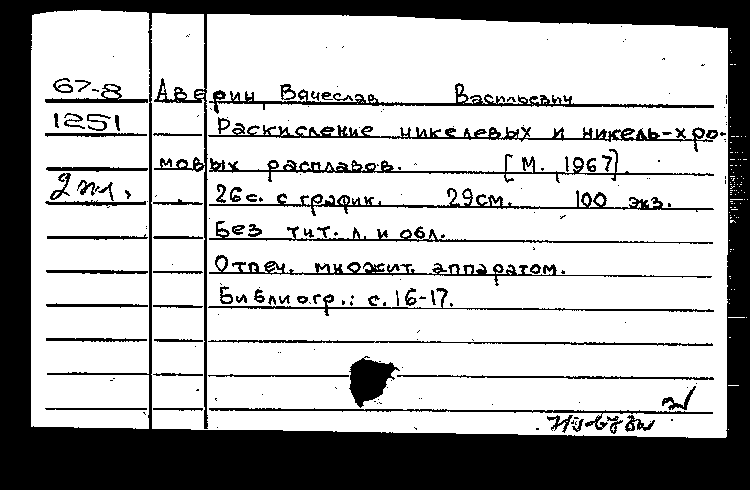 67-8 Аверин, Вячеслав Васильевич
1251 Раскисление никелевых и никель-хро-
мовых расплавов. [М., 1967].
2 экз. 26 с. с график. 29 см. 100 экз.
Без тит. л. и обл.
Отпеч. множит. аппаратом.
Библиогр.: с. 16-17.